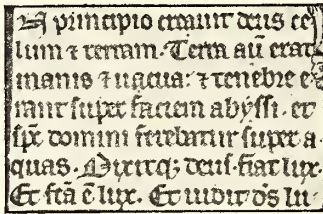 A principio creauit deus ce
lum ⁊ terram. Terra aū erat
inanis ⁊ uacua: ⁊ tenebre e
rant super faciem abyssi. et
sp̄s domini ferebatur super a
quas. Dixitq; deus. fiat lux.
Et fc̄ā ē lux. Et uidit dē̄s lu